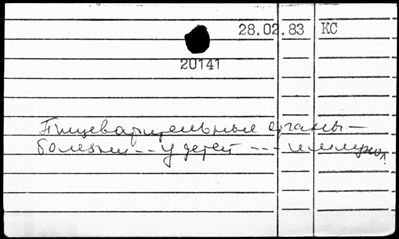 28.02.83 КС
20141
Пищеварительные органы –
болезни -- у детей --- иммунол.